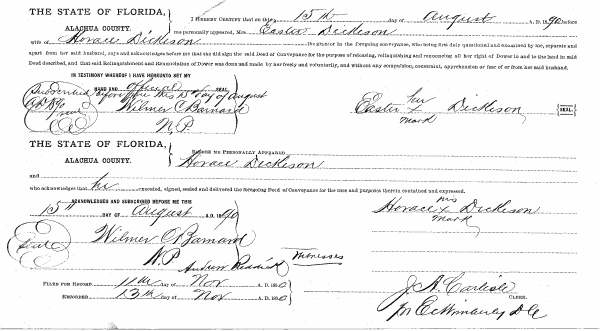 THE STATE OF FLORIDA,
ALACHUA COUNTY.
I HEREBY CERTIFY that on this 15th day of August A.D. 1890 before
me personally appeared, Mrs. Easter Dickison
wife of Horace Dickison the grantor in the foregoing conveyance, who being first duly questioned and examined by me, separate and
apart from her said husband, says and acknowledges before me that she did sign the said Deed of Conveyance for the purpose of releasing, relinquishing and renouncing all her right of Dower in and to the land in said
Deed described, and that said Relinquishment and Renunciation of Dower was done and made by her freely and voluntarily, and without any compulsion, constraint, apprehension or fear of or from her said husband.
IN TESTIMONY WHEREOF I HAVE HEREUNTO SET MY
HAND AND official SEAL
Subscribed before me this 15 day of August
AD 1890
Wilmer C Barnard
N.P.
Easter her x mark Dickison {SEAL.}
THE STATE OF FLORIDA,
ALACHUA COUNTY.
BEFORE ME PERSONALLY APPEARED
Horace Dickison
and
who acknowledges that he executed, signed, sealed and delivered the foregoing Deed of Conveyance for the uses and purposes therein contained and expressed.
ACKNOWLEDGED AND SUBSCRIBED BEFORE ME THIS
15th DAY OF August A.D. 1890
Horace his x mark Dickison
Seal
Wilmer C Barnard
N.P
Andrew Reddick
Witnesses
FILED FOR RECORD 11th day of Nov A.D. 1890
RECORDED 13th day of Nov A.D. 1890
J. A. Carlisle
CLERK.
pr